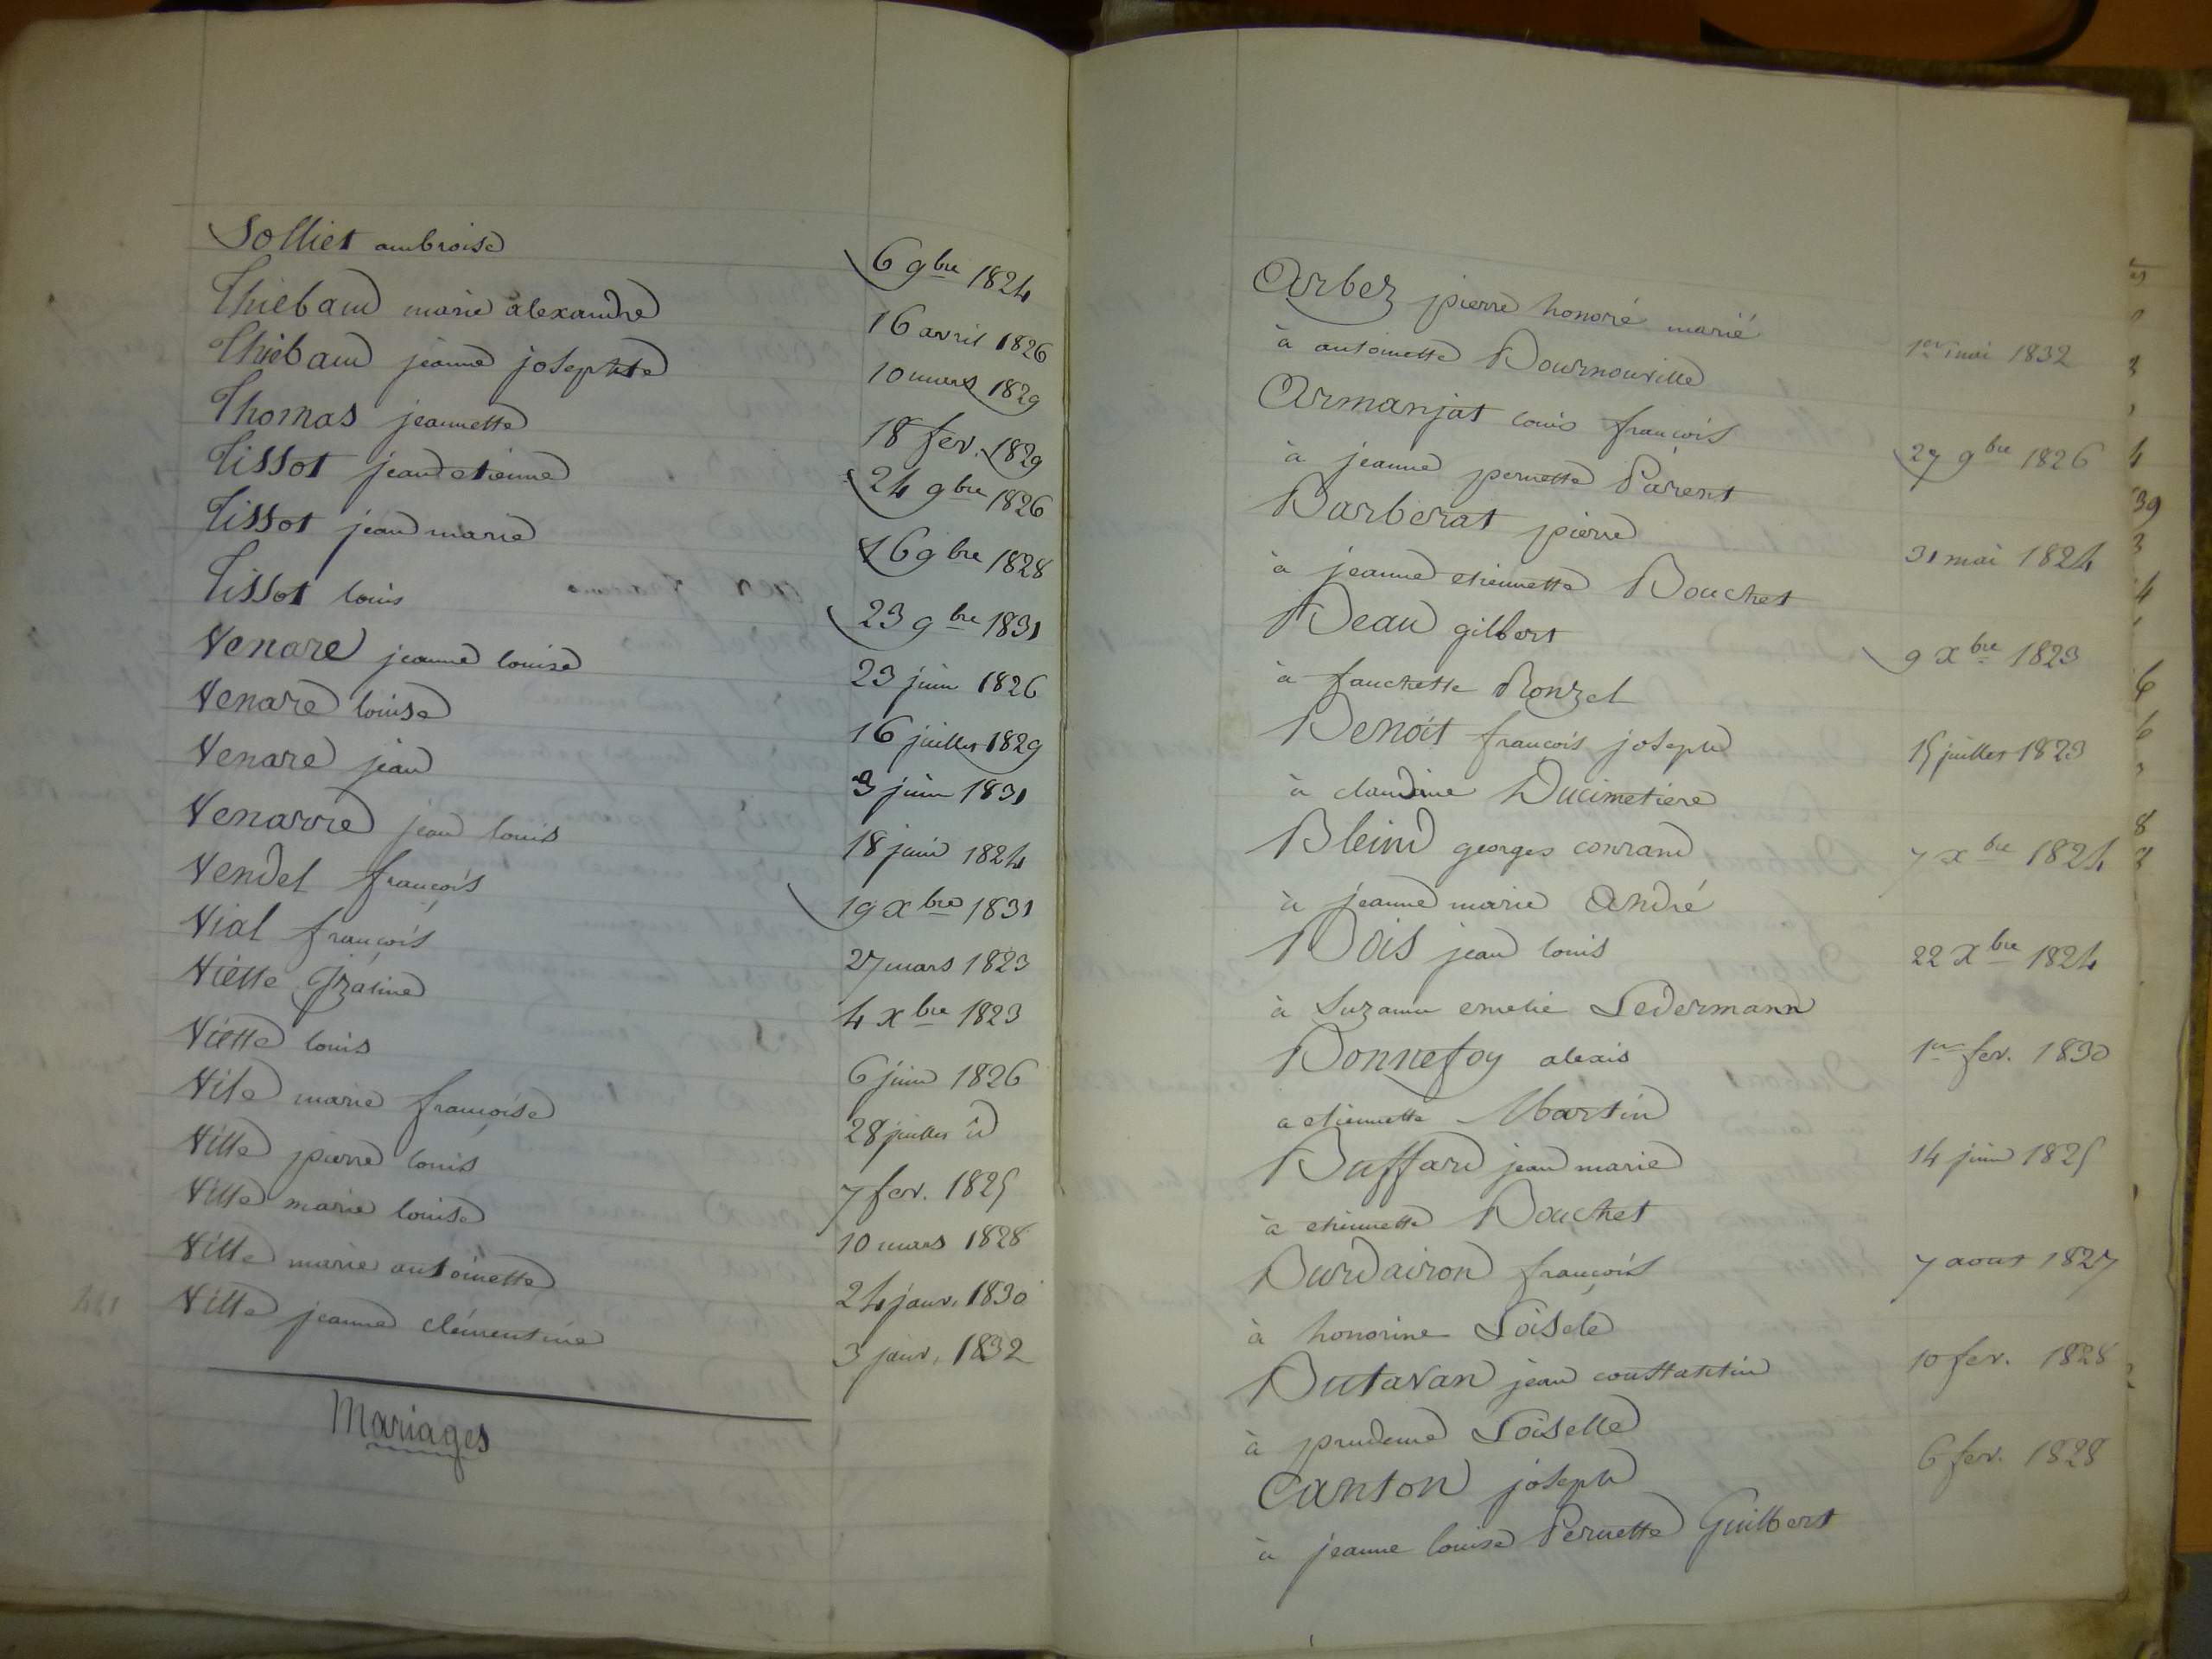 Solliet ambroise 6 9bre 1824
Thiebaud marie alexandre 16 avril 1826
Thiebaud jeanne josephte 10 mars 1829
Thomas jeannette 18 fev. 1829
Tissot jean etienne 24 9bre 1826
Tissot jean marie 16 9bre 1828
Tissot louis 23 9bre 1831
Venare jeanne louise 23 juin 1826
Venare louise 16 juillet 1829
Venare jean 3 juin 1831
Venarre jean louis 18 juin 1824
Vendel françois 19 xbre 1831
Vial françois 27 mars 1823
Viette 4 xbre 1823
Viette louis 6 juin 1826
Vite marie françoise 28 juillet id
Vitte pierre louis 7 fev. 1825
Vitte marie louise 10 mars 1828
Vitte marie antoinette 24 janv. 1830
Vitte jeanne clémentine 3 janv. 1832
Mariages
Arbez pierre honoré marié
à antoinette Dournouville 1er mai 1832
Armanjat louis françois
à jeanne pernette Parent 27 9bre 1826
Barberat pierre
à jeanne etiennette Bouchet 31 mai 1824
Beau gilbert
à fanchette Ronzel 9 xbre 1823
Benoit françois joseph
à claudine Ducimetiere 15 juillet 1823
Bleind georges conrand
à jeanne marie André 7 xbre 1824
Bois jean louis
à Suzanne emelie Ledermann 22 xbre 1824
Bonnefoy alexis
a etiennette Martin 1er fev. 1830
Buffard jean marie
à etiennette Bouchet 14 juin 1825
Burdairon françois
à honorine Loisele 7 aout 1827
Butavan jean constantin
à prudence Loiselle 10 fev. 1828
Canton joseph
à jeanne louise Pernette Guilbert 6 fev. 1828